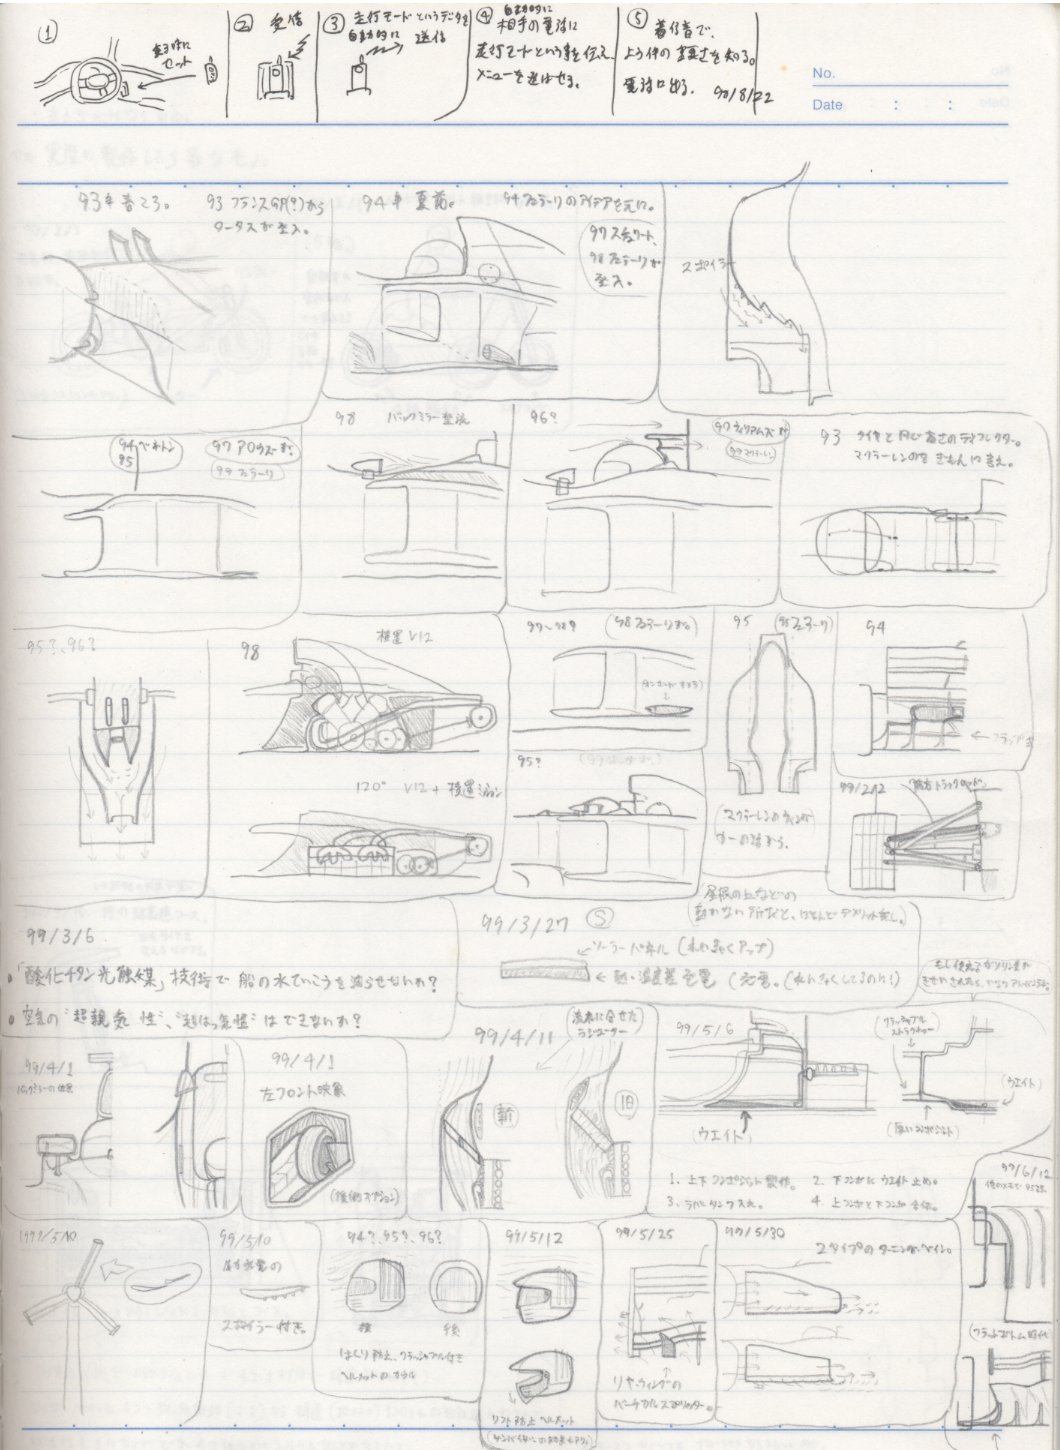 ①
乗る時に
セット
② 受信
③ 走行モードというデータを
自動的に 送信
④ 自動的に
相手の電話に
走行モードという事を伝え、
メニューを選ばせる。
⑤ 着信音で、
よう件の重要さを知る。
電話に出る。 99/8/22
No.
Date : :
93年春ころ。 93 フランスGP(?)から
ロータスが登入。
94年 夏前。 94フェラーリのアイデアを元に。
97スチュワート、
98フェラーリが
登入。
スポイラー
94ベネトン
95
97 アロウズが?
99フェラーリ
98 バックミラー整流
96?
97ウィリアムズが
99マクラーレン
93 タイヤと同じ高さのディフレクター。
95?、96?
98 横置V12
120° V12 + 横置ミッション
97~98? (98フェラーリが。)
95?
95 (95フェラーリ)
94
99/2/12
99/3/6
・「酸化チタン光触媒」技術で船の水ていこうを減らせないか?
・空気の"超親気性"、"超はっ気性"はできないか?
99/3/27 Ⓢ
ソーラーパネル (れいきゃくアップ)
屋根の上などの
動かない所だと、ほとんどデメリット無し。
99/4/1
バックミラーの位置
99/4/1
左フロント映象
99/4/11
流れに合せた
ラジエーター
新
旧
99/5/6
(ウエイト)
クラッシャブル
ストラクチャー
(ウエイト)
1. 上下コンポジット製作。 2. 下コンポにウエイト止め。
3. ラバータンク入れ。 4. 上コンポと下コンポ合体。
99/6/12
1999/5/10
99/5/10
スポイラー付き。
94?、95?、96?
前 後
はくり防止、フラップ付き
ヘルメットのカウル
99/5/12
リフト防止ヘルメット
99/5/25
リヤ・ウィングの
バーチカルスプリッター。
99/5/30
2タイプのターニングベイン。